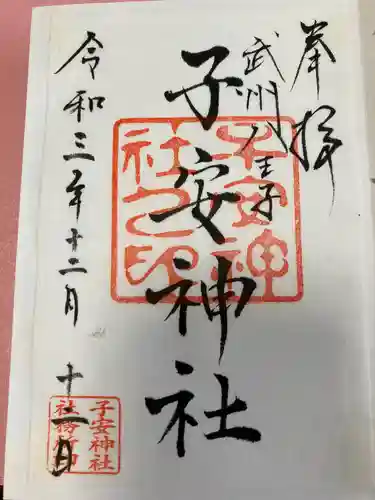 奉拝
武州八王子
子安神社
子安神
社之印
令和三年十二月十二日
子安神社
社務所印